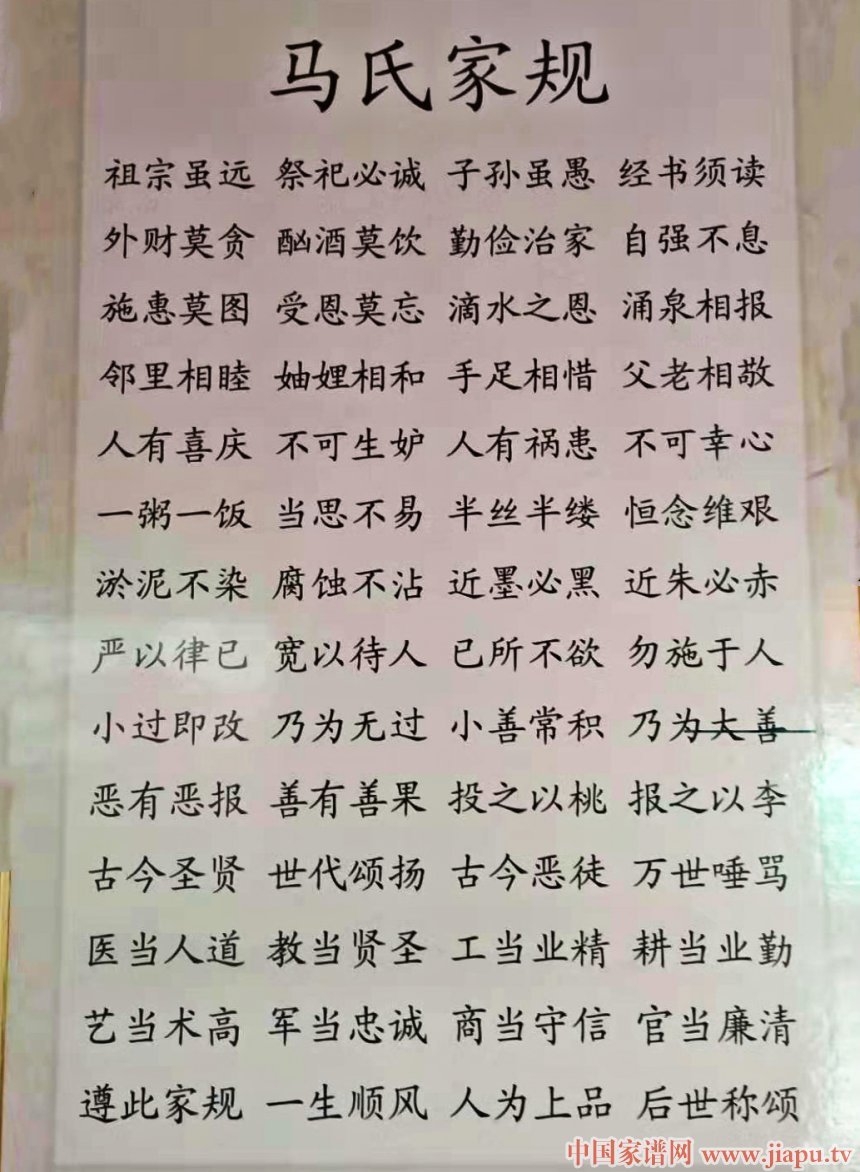 马氏家规
祖宗虽远 祭祀必诚 子孙虽愚 经书须读
外财莫贪 酗酒莫饮 勤俭治家 自强不息
施惠莫图 受恩莫忘 滴水之恩 涌泉相报
邻里相睦 妯娌相和 手足相惜 父老相敬
人有喜庆 不可生妒 人有祸患 不可幸心
一粥一饭 当思不易 半丝半缕 恒念维艰
淤泥不染 腐蚀不沾 近墨必黑 近朱必赤
严以律已 宽以待人 已所不欲 勿施于人
小过即改 乃为无过 小善常积 乃为大善
恶有恶报 善有善果 投之以桃 报之以李
古今圣贤 世代颂扬 古今恶徒 万世唾骂
医当人道 教当贤圣 工当业精 耕当业勤
艺当术高 军当忠诚 商当守信 官当廉清
遵此家规 一生顺风 人为上品 后世称颂
中国家谱网 www.jiapu.tv